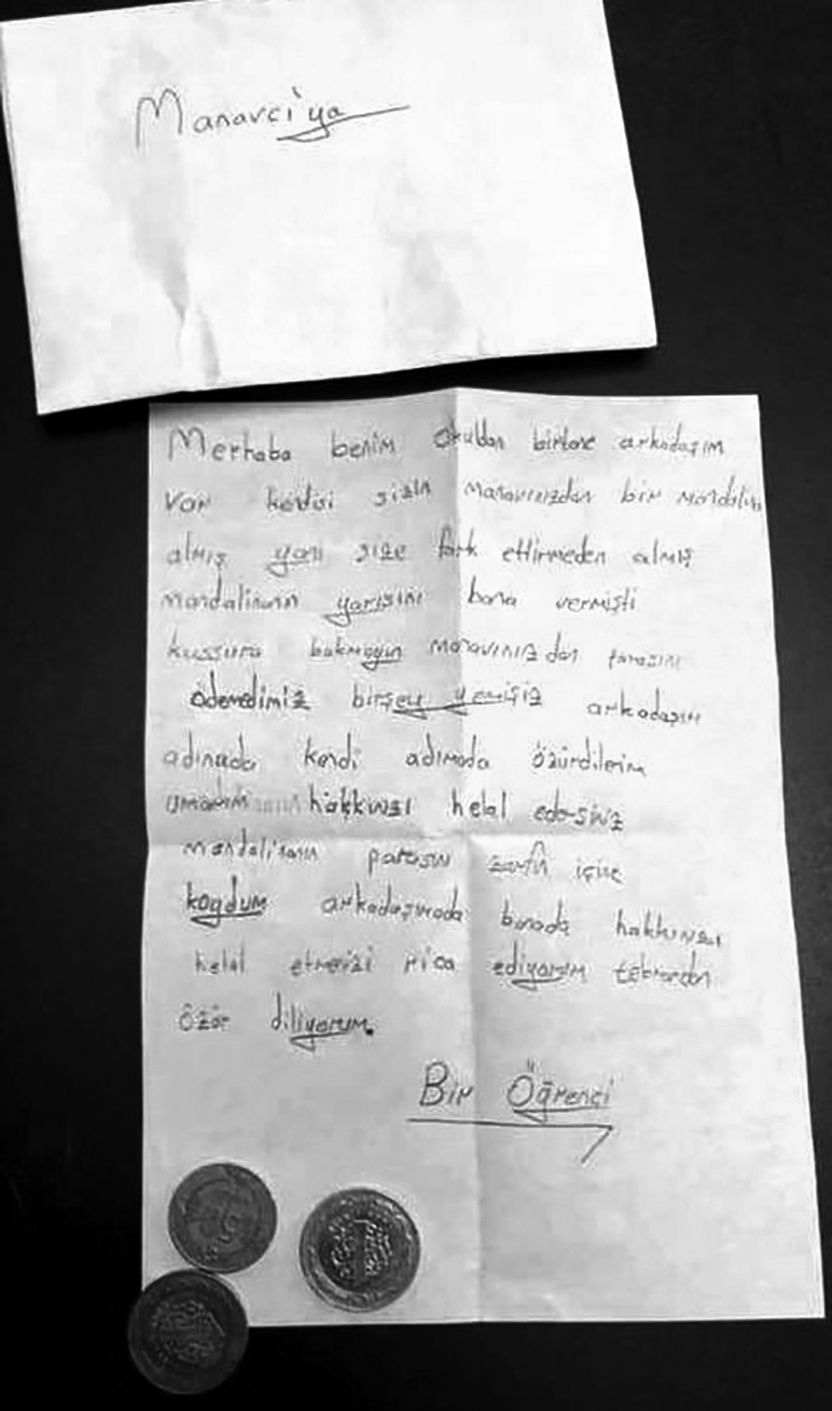 Manavci'ya
Merhaba benim okuldan birtane arkadaşım
var kendisi sizin manavınızdan bir mandalina
almış yani size fark ettirmeden almış
mandalinanın yarısını bana vermişti
kussura bakmayın manavınızdan parasını
ödemedimiz birşey yemişiz arkadaşım
adınada kendi adımada özürdilerim
umarım hakkınızı helal edersiniz
mandalinanın parasını zarfın içine
koydum arkadaşımada banada hakkınızı
helal etmenizi rica ediyorum tekrardan
özür diliyorum.
Bir Öğrenci